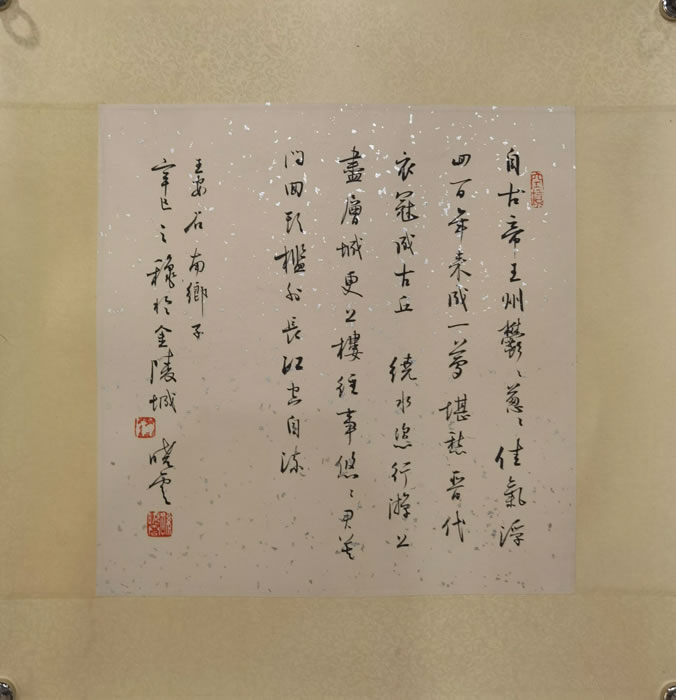 自古帝王州鬱〻葱〻佳氣浮
四百年来成一夢堪愁晉代
衣冠成古丘 繞水恣行游上
盡層城更上樓往事悠〻君莫
問回頭檻外長江空自流
王安石 南鄉子
辛巳之穐於金陵城 曉雲